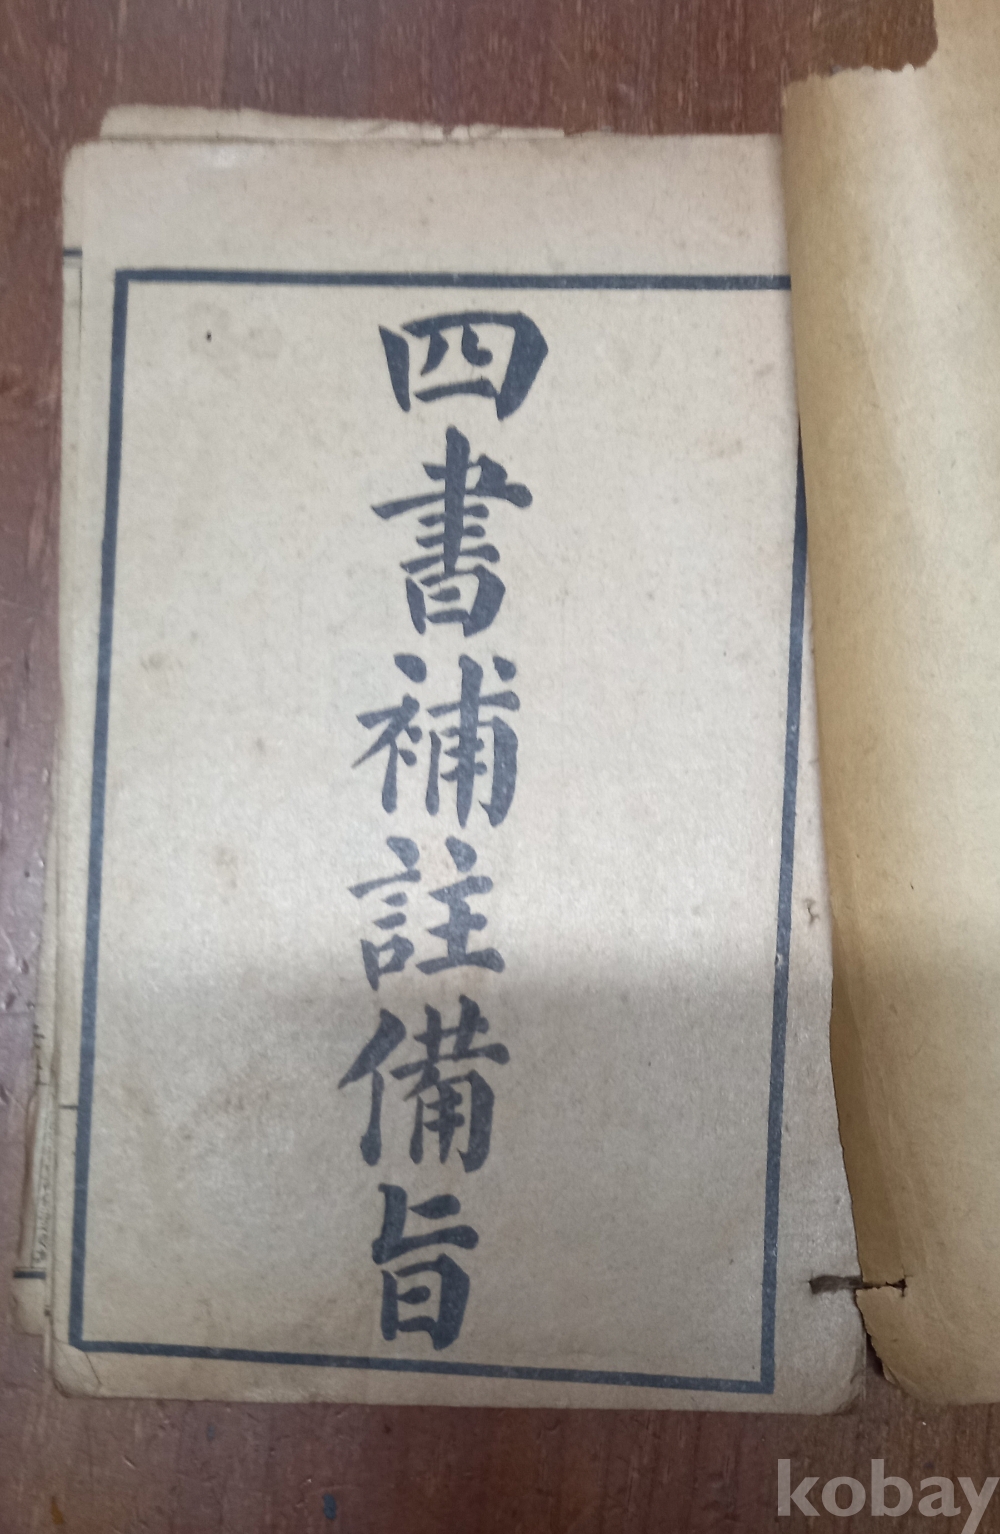 四書補註備旨
kobay